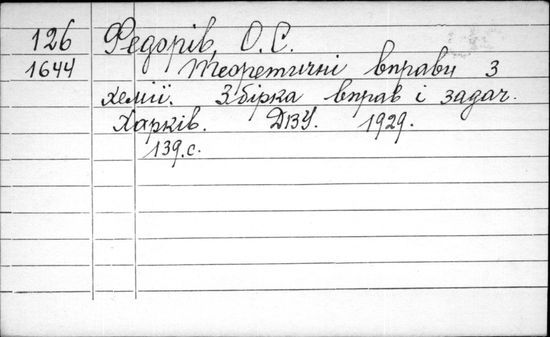 126 Федорів, О.С.
1644 Теоретичні вправи з
хемії. Збірка вправ і задач.
Харків. ДВУ. 1929.
139.с.